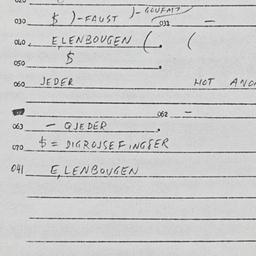 030 $ )-FAUST )-GOUFMT 031 -
040 ELENBOUGEN ( (
050 $
060 JEDER HOT ANO
062 -
063 - QJEDER
070 $ = DIGROJSEFINGSER
041 E,LENBOUGEN